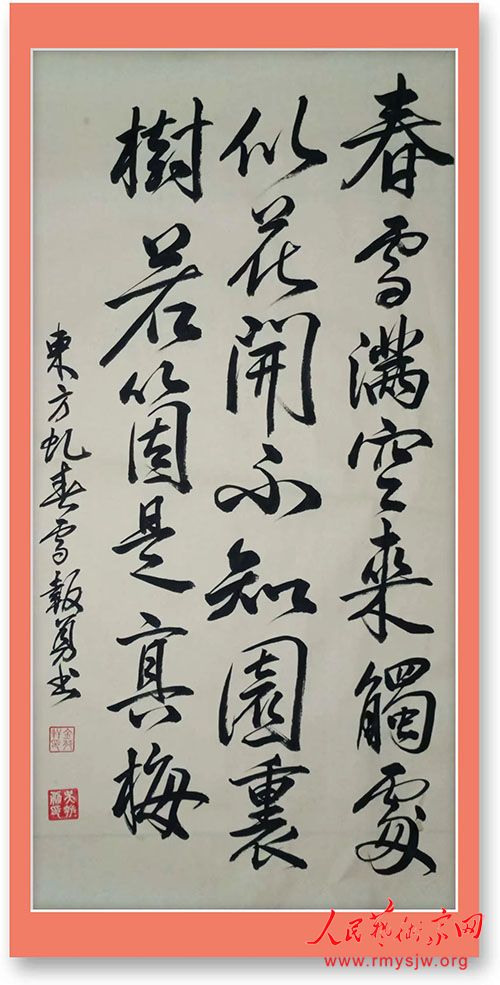 春雪滿空來觸處
似花開不知園裏
樹若箇是真梅
東方虬春雪報勇书
人民藝術家网
www.rmysjw.org